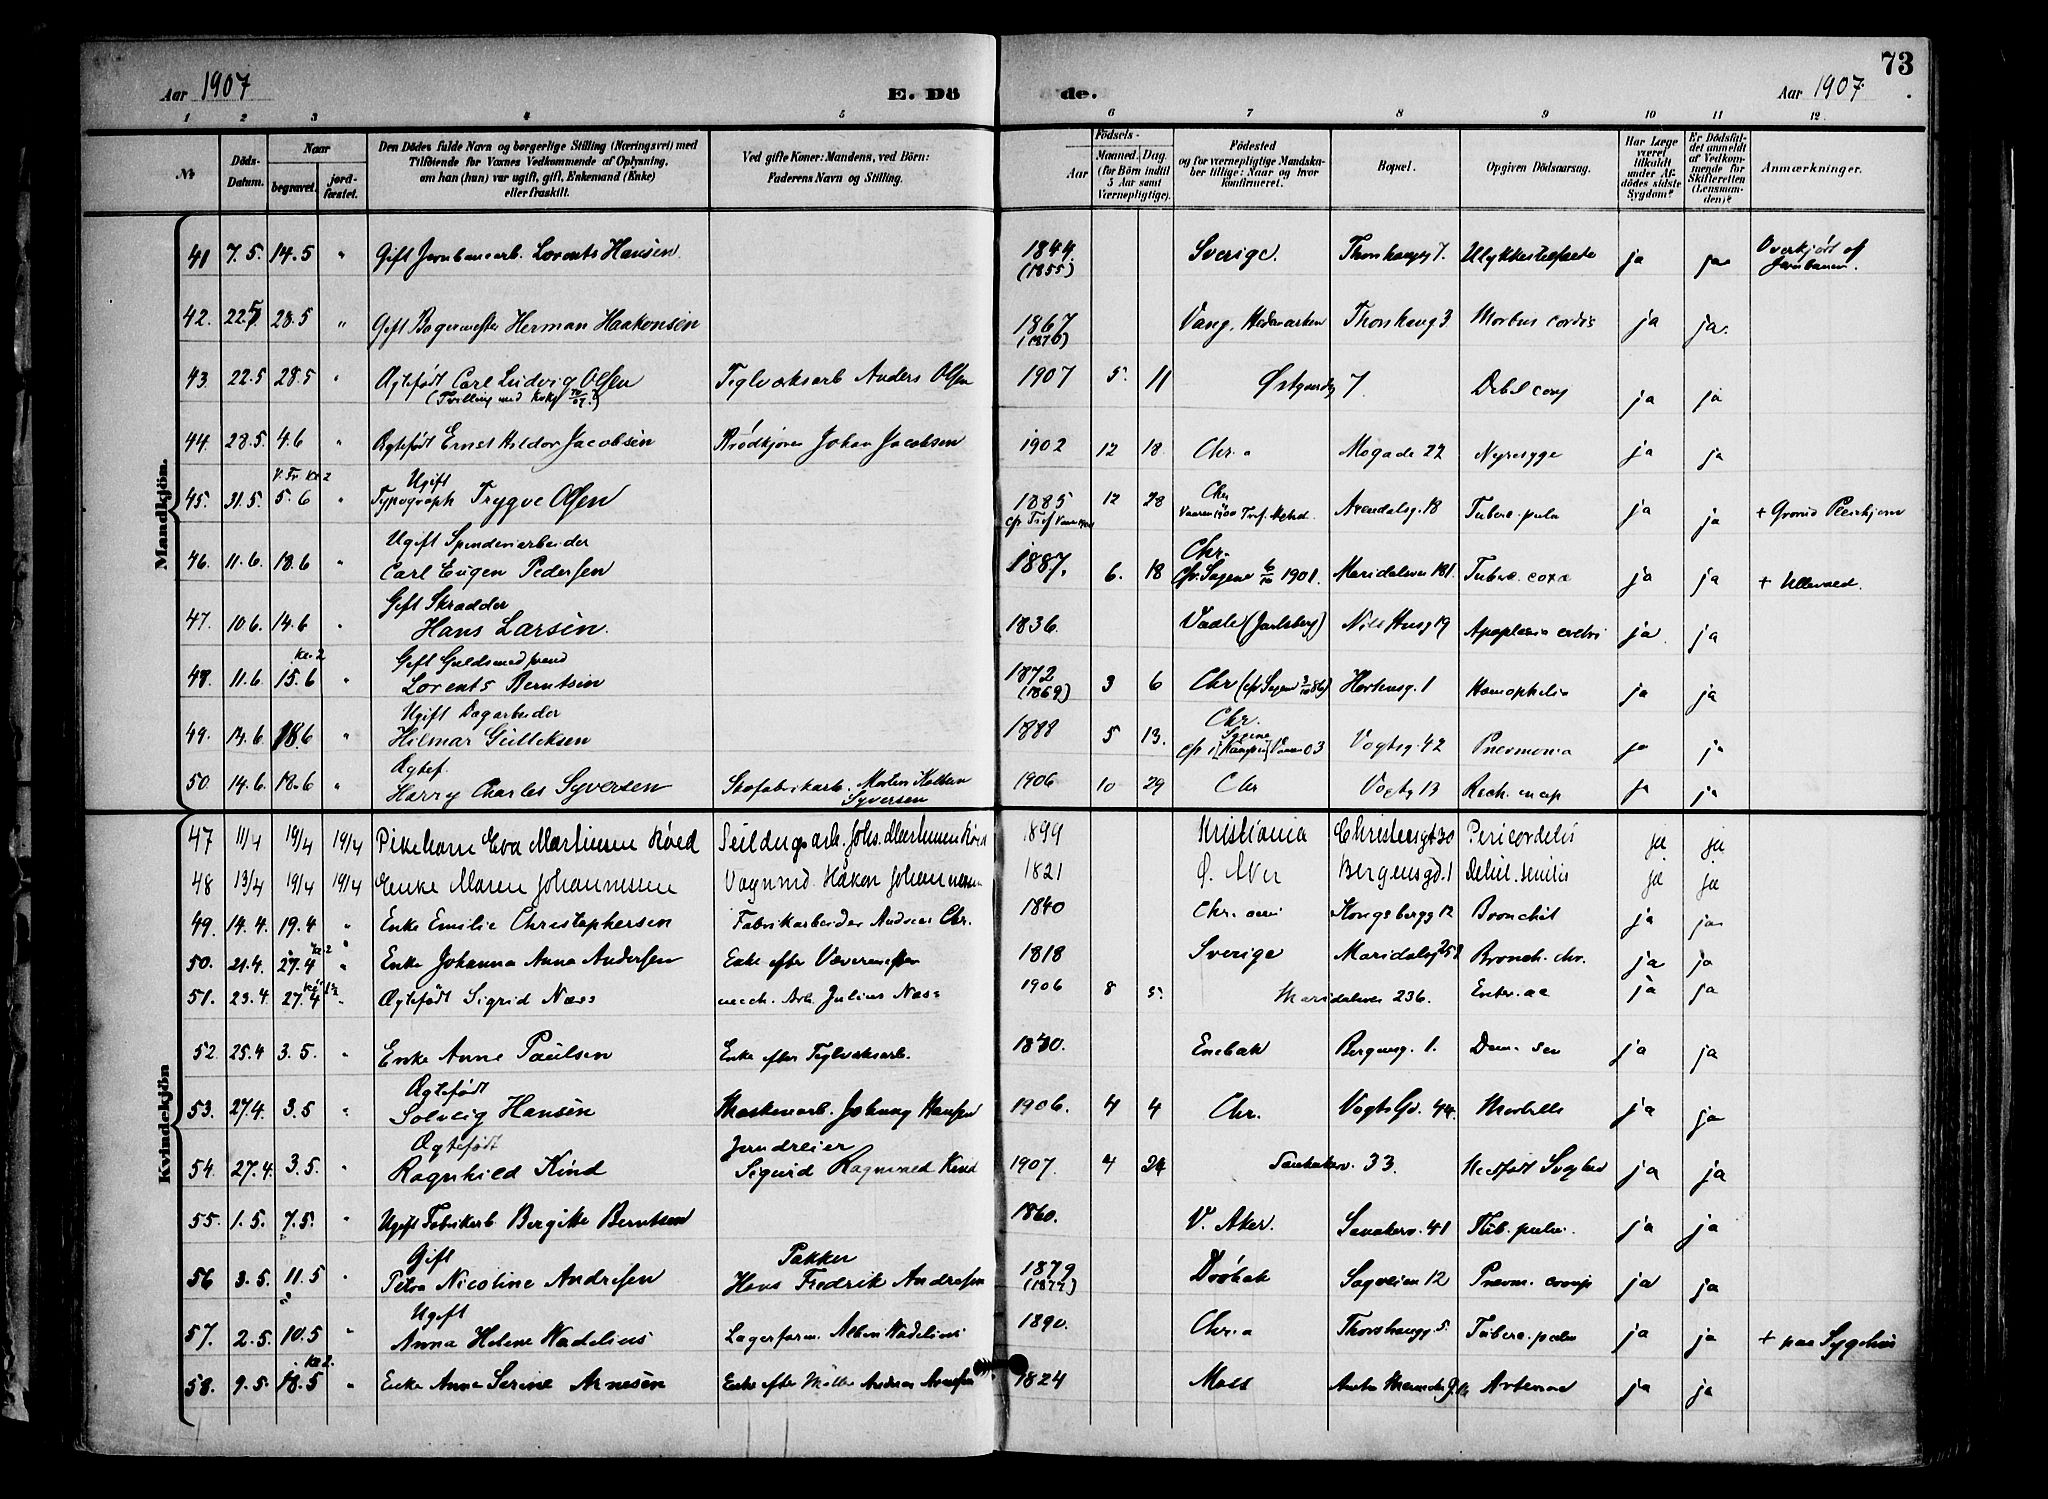 73
Aar 1907
E. Dö
de.
Aar 1907
1 2 3 4 5 6 7 8 9 10 11 12.
№
Döds-Datum.
Naar
begravet.
jord-fæstet.
Den Dödes fulde Navn og borgerlige Stilling (Næringsvei) med
Tilföiende for Voxnes Vedkommende af Oplysning,
om han (hun) var ugift, gift, Enkemand (Enke)
eller fraskilt.
Ved gifte Koner: Mandens, ved Börn:
Faderens Navn og Stilling.
Födsels-
Aar
Maaned. Dag.
(for Börn indtil
5 Aar samt
Værnepligtige).
Födested
og for værnepligtige Mandska-
ber tillige: Naar og hvor
konfirmeret.
Bopæl.
Opgiven Dödsaarsag.
Har Læge
været
tilkaldt
under Af-
dödes sidste
Sygdom?
Er Dödsfal-
det anmeldt
af Vedkom-
mende for
Skifteretten
(Lensman-
den)?
Anmærkninger.
Mandkjön.
41 7.5. 14.5 " Gift Jernbanearb. Lorents Hansen 1844. (1855) Sverige. 7. Ulykkestilfælde ja ja Overkjørt af Jernbanen.
42. 22.5 28.5 " Gift Bagermester Herman Haakonsen 1867 (1870) Vang, Hedemarken Thorshaug 3 Morbus cordis ja ja.
43. 22.5 28.5 " Ægtefødt Carl Ludvig Olsen Teglværksarb Anders Olsen 1907 5. 11 7 ja ja
(Tvilling med
44. 28.5. 4.6 " Ægtefødt Ernst Hildor Jacobsen Brødkjører Johan Jacobsen 1902 12 18. Chr.a Mogade 22 Nyresyge ja ja
45. 31.5. 5.6 " Ugift Typograph Trygve Olsen 1885 12 28 Chr Arendalsg. 18 Tuberc. pulm ja ja +
46. 11.6. 18.6 " Ugift Spinderiarbeider Carl Eugen Pedersen 1887. 6. 18 Chr. cfr. Sagene 6/10 1901. Maridalsvei 181. Tuberc. coxæ ja ja + Ullevaal.
47. 10.6. 14.6 " Gift Skrædder Hans Larsen. 1836. Vaale (Jarlsberg) Nils Husg 19 Apoplexia cerebri ja. ja
48. 11.6. 15.6 kl. 2 " Gift Guldsmedsvend Lorents Berntsen 1872 (1869) 3 6 Chr (cfr. Sagene 3/10 86) Hortensg. 1 Hæmophelia ja ja
49. 14.6. 18.6 " Ugift Dagarbeider Hilmar Gulliksen 1888 5 13. Chr. Vogtsg. 42 Pneumonia ja ja
50. 14.6. 18.6 " Ægtef. Harry Charles Syversen Skofabrikarb. Syversen 1906 10 29 Chr Vogtg 13 ja ja
Kvindekjön
47 11/4 19/4 19/4 Pikebarn Eva Martinsen Røed Seildugsarb. Johs. Martinsen Røed 1899 Kristiania Pericarditis ja ja
48 13/4 19/4 19/4 Enke Maren Johannessen Vognmd. Håkon Johannessen 1821 Ø. Aker Bergensgd. 1 Debil. senilis ja ja
49. 14.4. 19.4 " Enke Emilie Christophersen Fabrikarbeider Andreas Chr. 1840 Kongsbergg 12 Bronchit ja ja
50. 21.4. 27.4 kl. 2 " Enke Johanna Anna Andersen Enke efter Væverimester 1818 Sverige Bronch. chr. ja ja
51. 23.4. 27.4 " Ægtefødt Sigrid Næss mech. Arb. Julius Næss 1906 8 5. Maridalsvei 236. ja ja
52. 25.4 3.5. " Enke Anne Paulsen Enke efter Teglværksarb. Enebak Bergensg. 1. Dem. sen ja ja
53. 27.4. 3.5 " Ægtefødt Solveig Hansen Maskinarb. Johnny Hansen 1906. 4 4 Chr. Vogts Gd. 44. Morbilli ja ja
54. 27.4. 3.5. " Ægtefødt Ragnhild Kind Jerndreier Sigurd Kind 1907. 4 24 33. Medfødt Svaghed ja ja
55. 1.5. 7.5. " Ugift Fabrikarb. Bergitte Berntsen 1860. V. Aker. Sandakerv. 41 Tub. pulm. ja ja
56 3.5. 11.5 " Gift Petra Nicoline Andresen Pakker Hans Fredrik Andresen 1879 Drøbak Sagveien 12 Pneum. croup ja ja
57. 2.5. 10.5 " Ugift Anna Helene Wadelius Wadelius 1890. Chr.a Thorshaugg 5. Tuberc. pulm ja ja + paa Sygehus
58. 9.5. 18.5 kl. 2. " Enke Anne Serine Arnesen Enke efter Møller Andreas Arnesen 1824 Moss ja ja